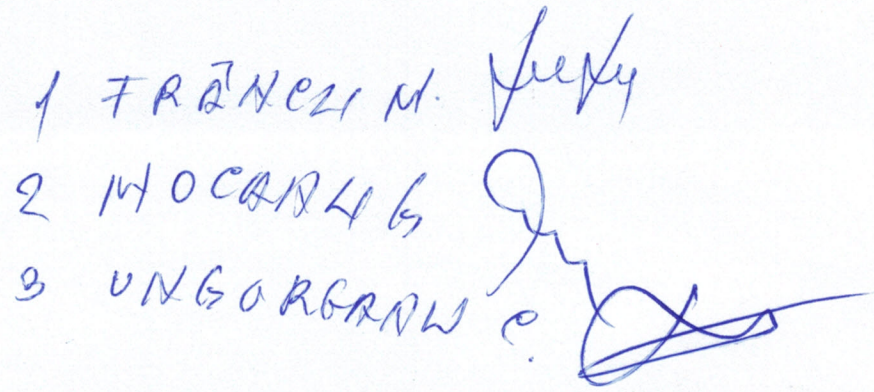 1 FRÂNCU M.
2 MOCANU G
3 UNGUREANU C.